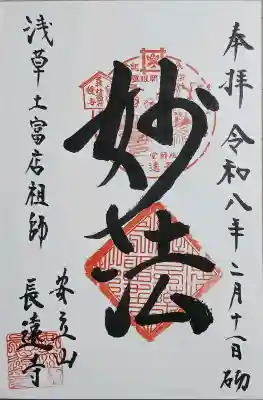 奉拝 令和八年二月十一日 砌
妙法
浅草土富店祖師
安立山
長遠寺